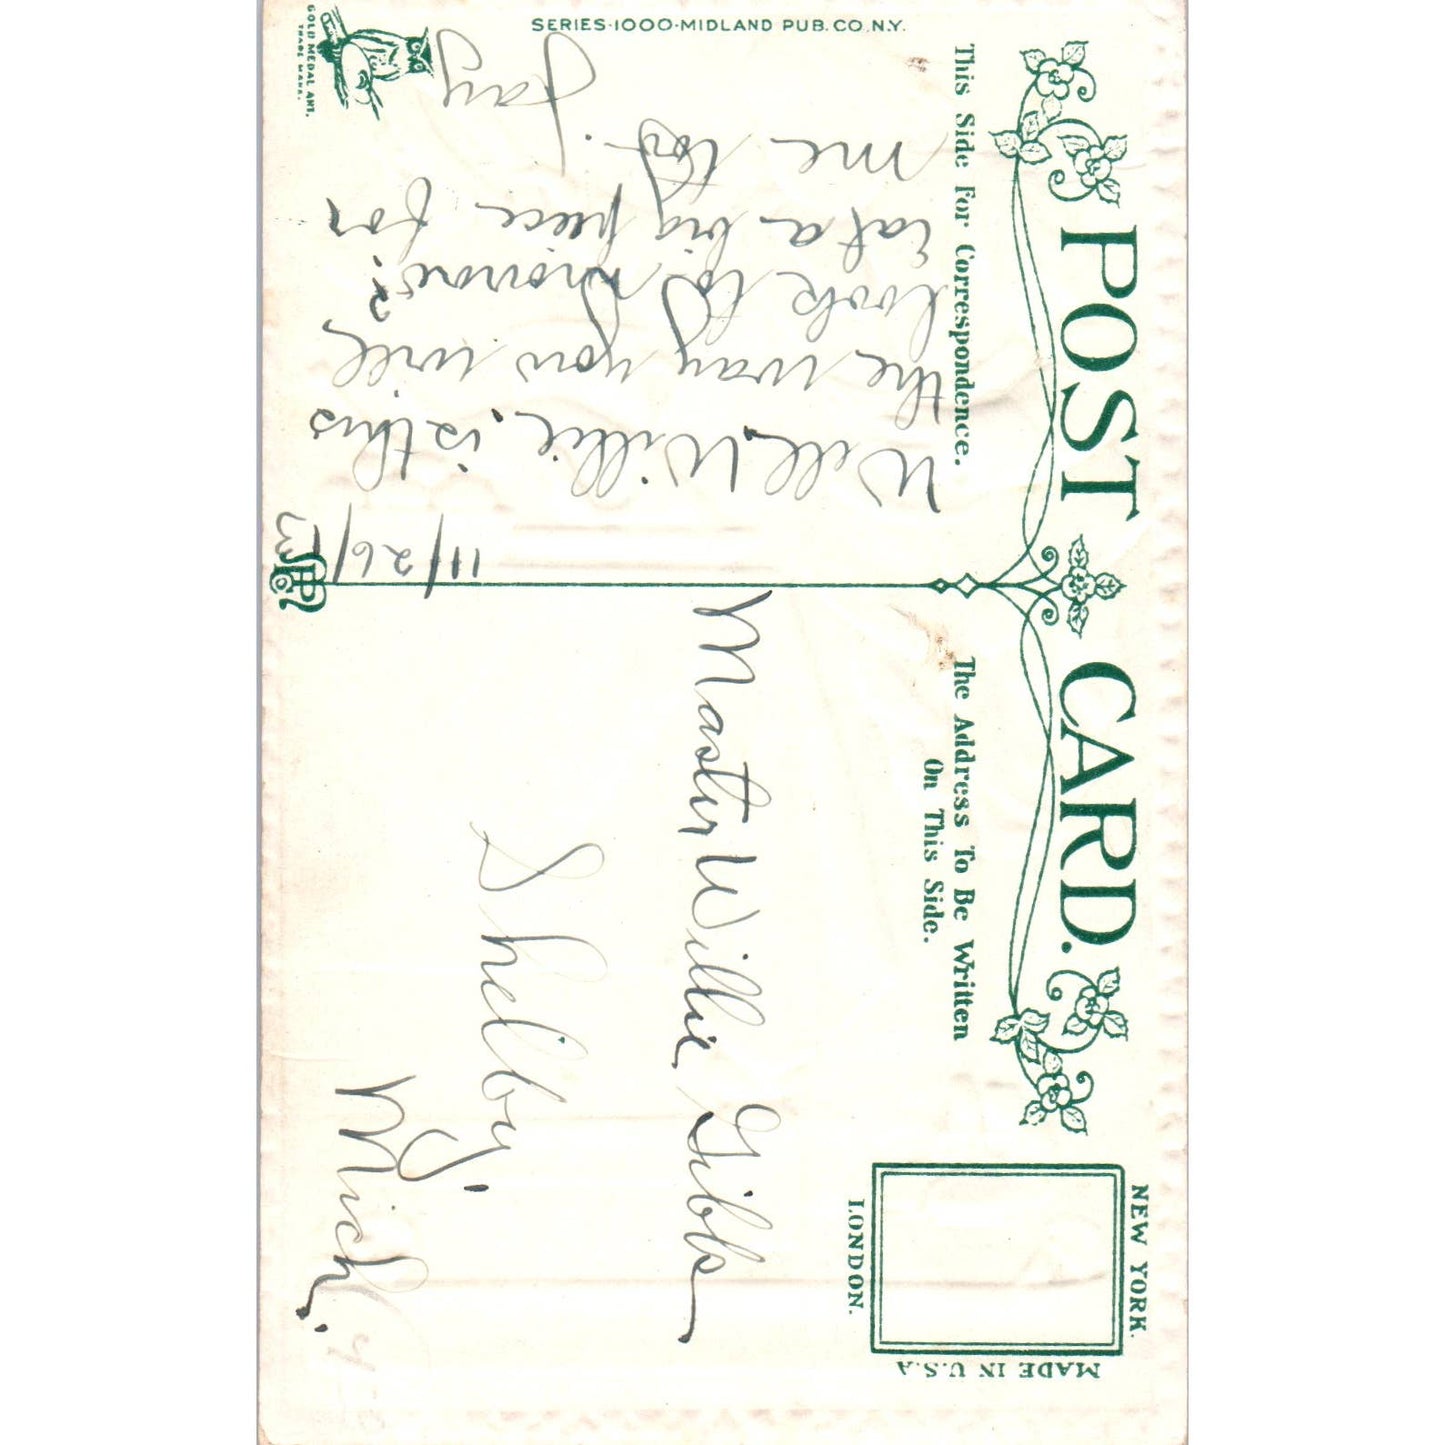 SERIES·1000·MIDLAND PUB. CO., N.Y.
GOLD MEDAL ART.
TRADE MARK.
POST CARD.
This Side For Correspondence.
The Address To Be Written
On This Side.
NEW YORK.
LONDON.
MADE IN U.S.A
11/26/
Well Willie, is this
the way you will
look to morrow?
Eat a big piece for
me too.
Fay
Master Willie Gibbs
Shelby,
Mich.